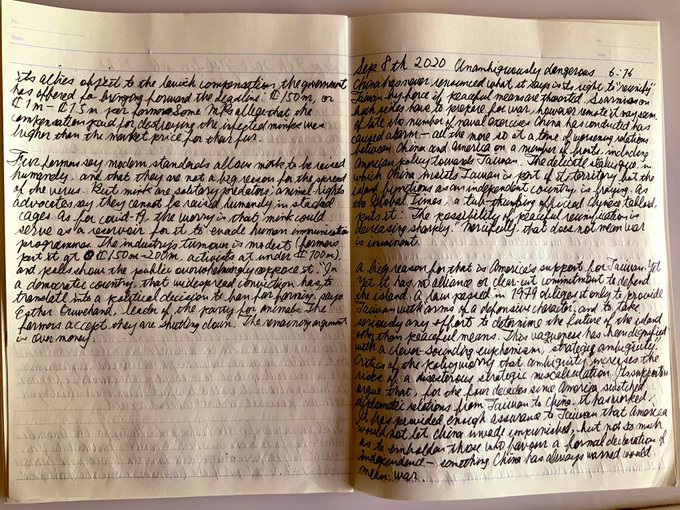 No.
Date
its allies object to the lavish compensation the government
has offered in bringing forward the deadline: €150m, or
€1m - €1.5m per farmer. Some MPs allege that the
compensation paid for destroying the infected minks was
higher than the market price for their fur.
Fur farmers say modern standards allow mink to be raised
humanely, and that they are not a big reason for the spread
of the virus. But mink are solitary predators; animal rights
advocates say they cannot be raised humanely in stacked
cages. As for covid-19, the worry is that mink could
serve as a reservoir for it to evade human immunisation
programmes. The industry's turnover is modest (farmers
put it at €150m-200m, activists at under €100m),
and polls show the public overwhelmingly oppose it. "In
a democratic country, that widespread conviction has to
translate into a political decision to ban fur farming", says
Esther Ouwehand, leader of the party for animals. The
farmers accept they are shutting down. The remaining argument
is over money.
Sep 8th 2020 Unambiguously dangerous 6:76
China has never renounced what it says is its right to "reunify"
Taiwan by force if peaceful means are thwarted. So armies on
both sides have to prepare for war, however remote it may seem
of late the number of naval exercises China has conducted has
caused alarm - all the more so at a time of worsening relations
between China and America on a number of fronts, including
American policy towards Taiwan. The delicate status quo, in
which China insists Taiwan is part of its territory but the
island functions as an independent country, is fraying. As
the Global Times, a tub-thumping official Chinese tabloid,
puts it: "The possibility of peaceful reunification is
decreasing sharply." Mercifully, that does not mean war
is imminent.
A big reason for that is America's support for Taiwan. Yet
Yet it has no alliance or clear-cut commitment to defend
the island. A law passed in 1979 obliges it only to provide
Taiwan with arms of a defensive character, and to take
seriously any effort to determine the future of the island
other than peaceful means. This vagueness has been dignified
with a clever-sounding euphemism, "strategic ambiguity".
Critics of the policy worry that ambiguity increases the
risk of a disastrous strategic miscalculation. Its supporters
argue that, for the four decades since America switched
diplomatic relations from Taiwan to China, it has worked.
It has provided enough assurance to Taiwan that America
would not let China invade unpunished, but not so much
as to embolden those who favour a formal declaration of
independence - something China has always warned would
mean war.